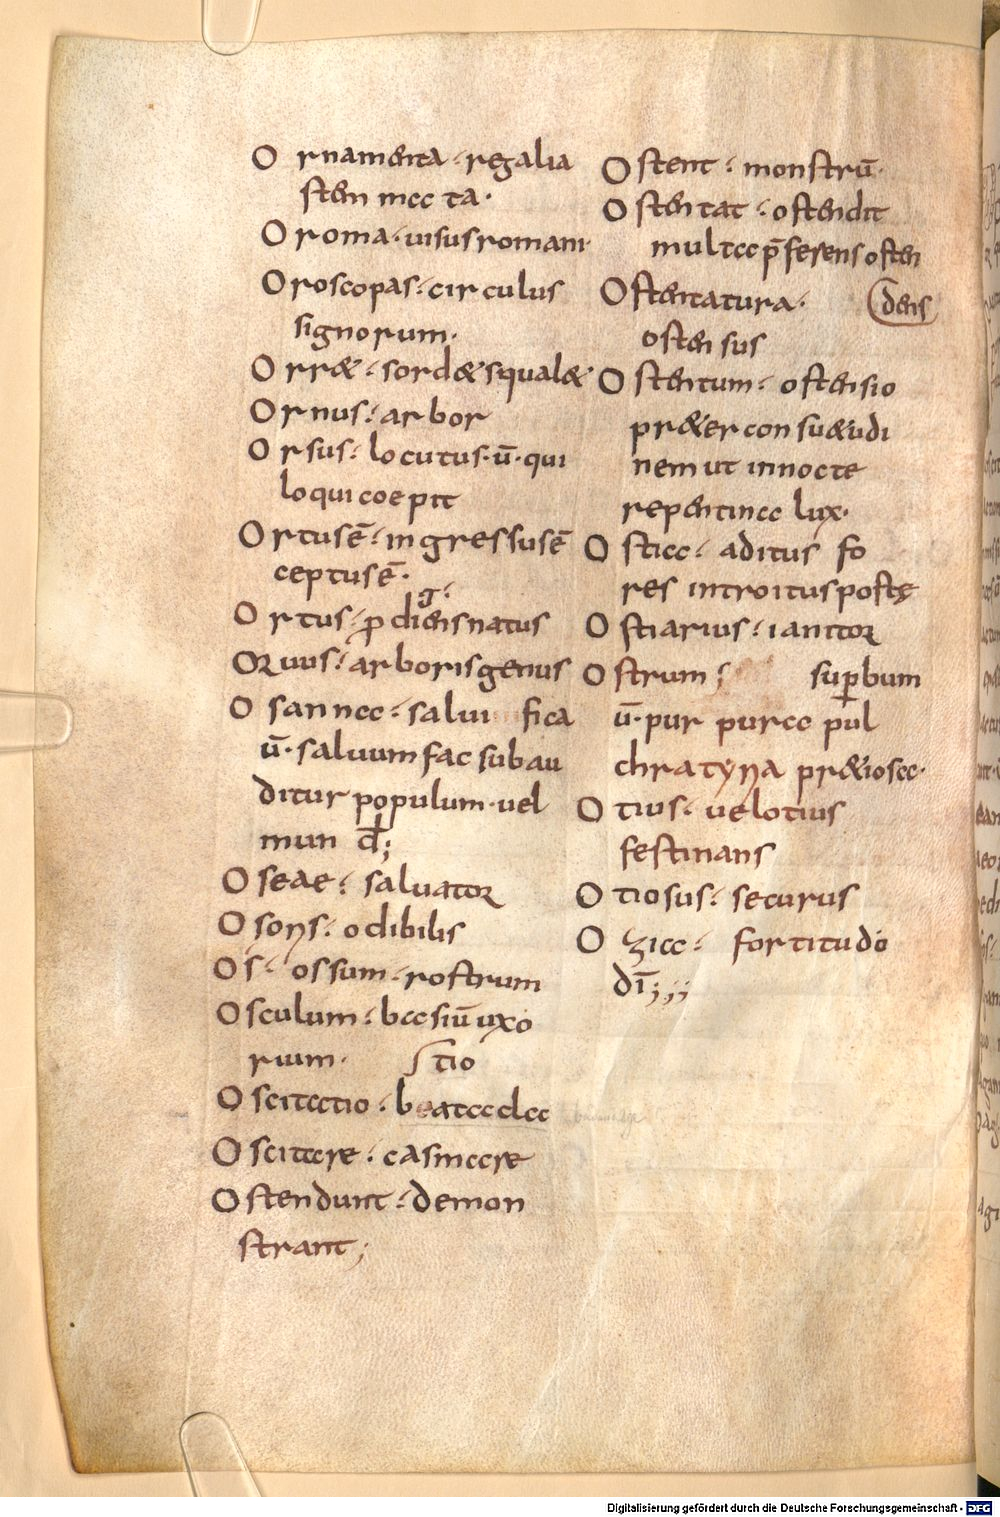 Ornamenta · regalia
stemmata ·
Oroma · uisus romani ·
Oroscopas · circulus
signorum ·
Orret · sordet squalet
Ornus · arbor
Orsus · locutus · ū · qui
loqui coepit
Ortus ē · ingressus ē
ceptus ē ·
Ortus · ꝓdiens natus
g ·
Oruus · arboris genus
Osanna · salui fica
ū · saluum fac subau
ditur populum · uel
mun d̄;
Oseae · saluator
Osons · odibilis
Os · ossum · rostrum
Osculum · basiū uxo
rium ·
tio
Oscitatio · beatacla
Oscitare · casmare
Ostendunt · demon
strant;
Ostent · monstrū ·
Ostentat · ostendit
multa p̄ferens osten
dens
Ostentatura ·
ostensus
Ostentum · ostensio
preter consuetudi
nem ut in nocte
repentina lux ·
Ostia · aditus fo
res introitus postę
Ostiarius · ianitor
Ostrum · suꝑbum
ū · purpura pul
chra tyria pretiosa ·
Otius · uelotius
festinans
Otiosus · securus
Ozia · fortitudo
dī;;;
Digitalisierung gefördert durch die Deutsche Forschungsgemeinschaft - DFG